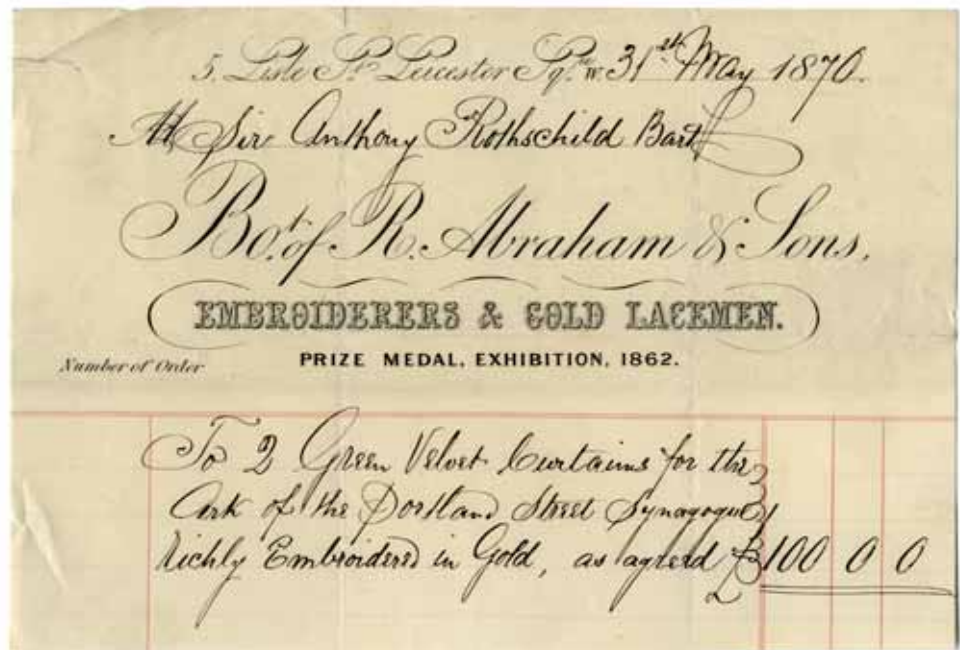 5, Lisle St. Leicester Sqre. W. 31st May 1870.
Sir Anthony Rothschild Bart
Bot. of R. Abraham & Sons,
EMBROIDERERS & GOLD LACEMEN.
PRIZE MEDAL, EXHIBITION, 1862.
Number of Order
To 2 Green Velvet Curtains for the
Ark of the Portland Street Synagogue
Richly Embroidered in Gold, as agreed £ 100 0 0